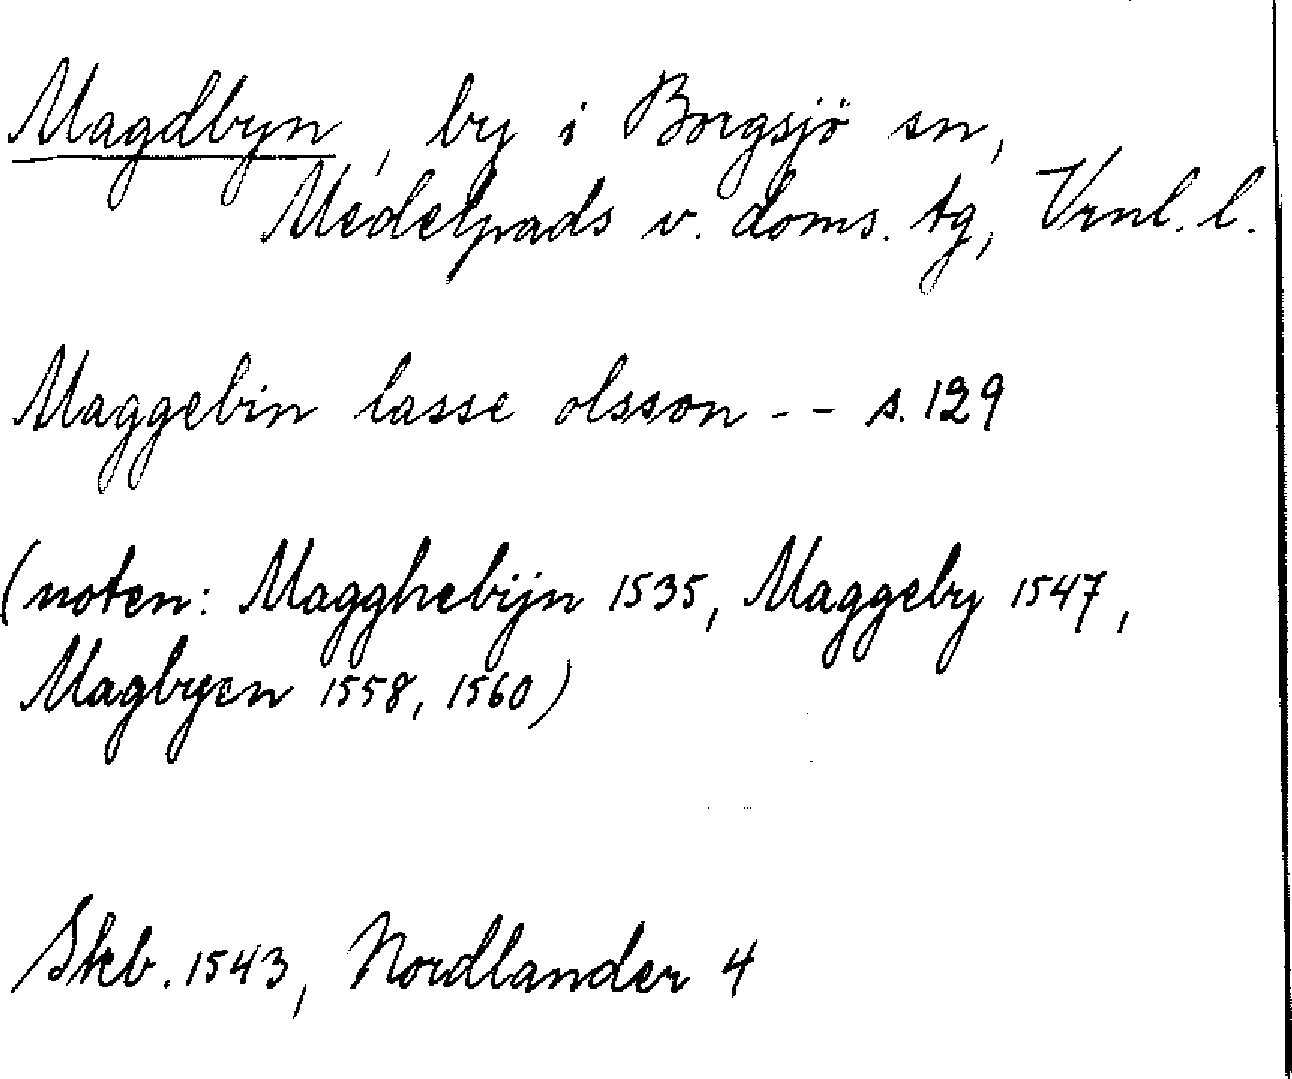 Magdbyn, by i Borgsjö sn,
Medelpads v. doms. tg, Vrnl. l.
Maggebin lasse olsson - - s. 129
(noten: Magghebijn 1535, Maggeby 1547,
Magbyen 1558, 1560)
Skb. 1543, Nordlander 4